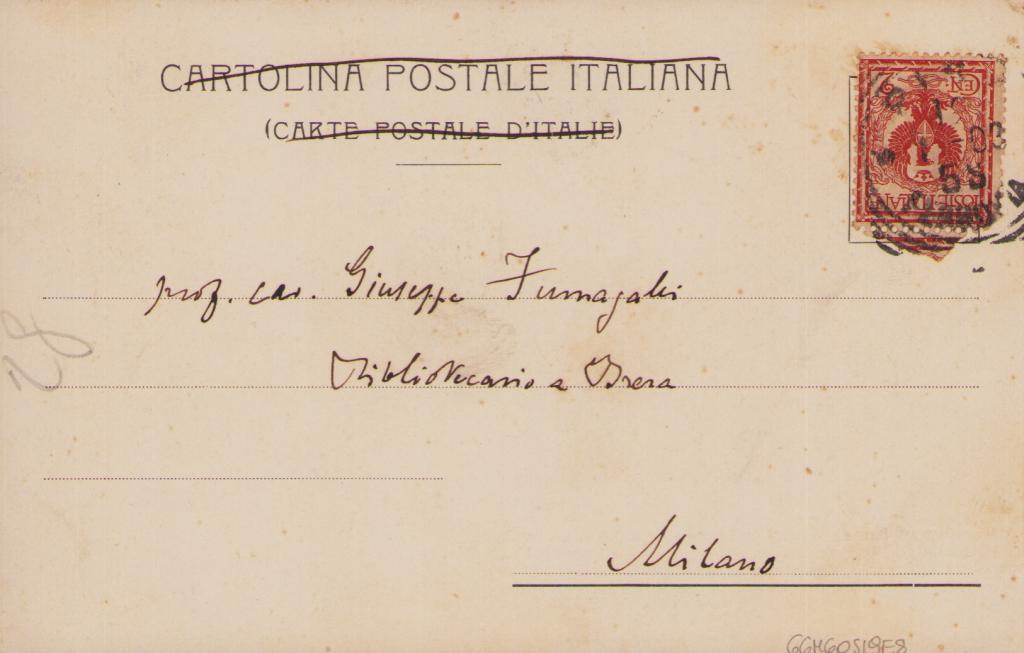 CARTOLINA POSTALE ITALIANA
(CARTE POSTALE D'ITALIE)
CEN. 2
POSTE ITALIANE
03
5 S
prof. cav. Giuseppe Fumagalli
Bibliotecario a Brera
Milano
28